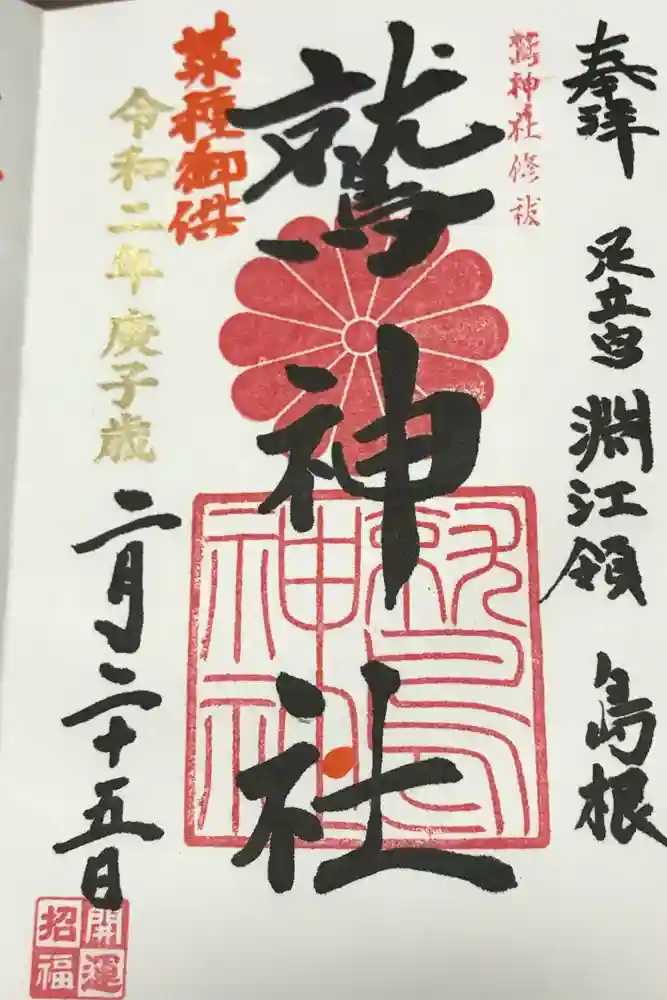 奉拝 足立 淵江領 島根
鷲神社修祓
鷲神社
鷲
神社
菜種御供
令和二年庚子歳
二月二十五日
開運
招福